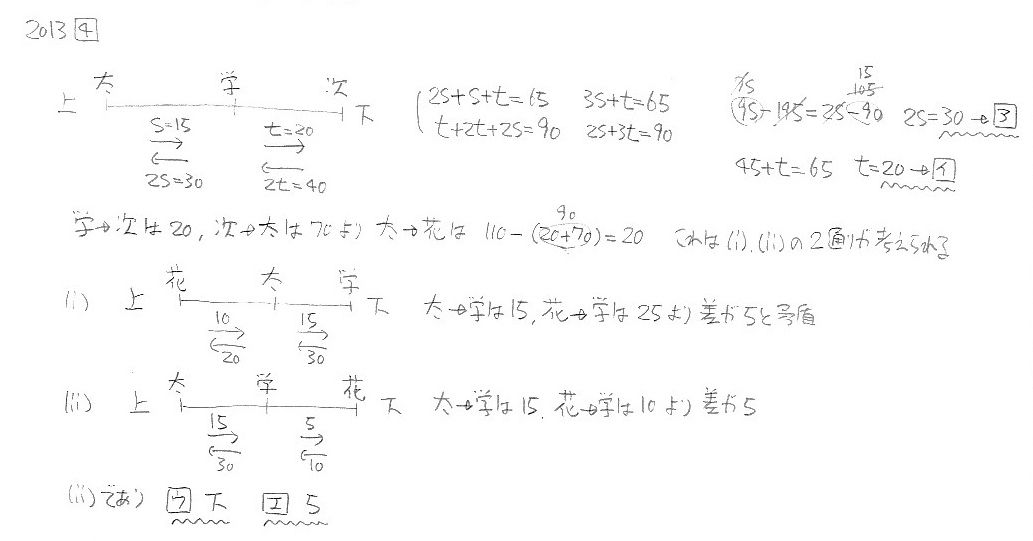 2013 4
太 学 次
上 下
S=15 t=20
2S=30 2t=40
2S+S+t=65 3S+t=65
t+2t+2S=90 2S+3t=90
7S 15 105
9S-195=2S-90 2S=30→ア
45+t=65 t=20→イ
学→次は20, 次→太は70より 太→花は 110-(20+70)=20 これは(i),(ii)の2通りが考えられる
90
(i) 上 花 太 学 下 太→学は15, 花→学は25より 差が5と矛盾
10 15
20 30
(ii) 上 太 学 花 下 太→学は15, 花→学は10より 差が5
15 5
30 10
(ii)であり ウ 下 エ 5